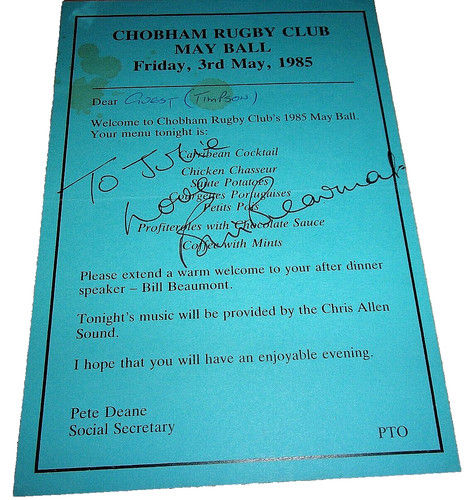 CHOBHAM RUGBY CLUB
MAY BALL
Friday, 3rd May, 1985
Dear GUEST (TIMPSON)
Welcome to Chobham Rugby Club's 1985 May Ball.
Your menu tonight is:
Carribean Cocktail
Chicken Chasseur
Saute Potatoes
Courgettes Portugaises
Petits Pois
Profiteroles with Chocolate Sauce
Coffee with Mints
To Julie
Love
Bill Beaumont
Please extend a warm welcome to your after dinner
speaker – Bill Beaumont.
Tonight's music will be provided by the Chris Allen
Sound.
I hope that you will have an enjoyable evening.
Pete Deane
Social Secretary
PTO